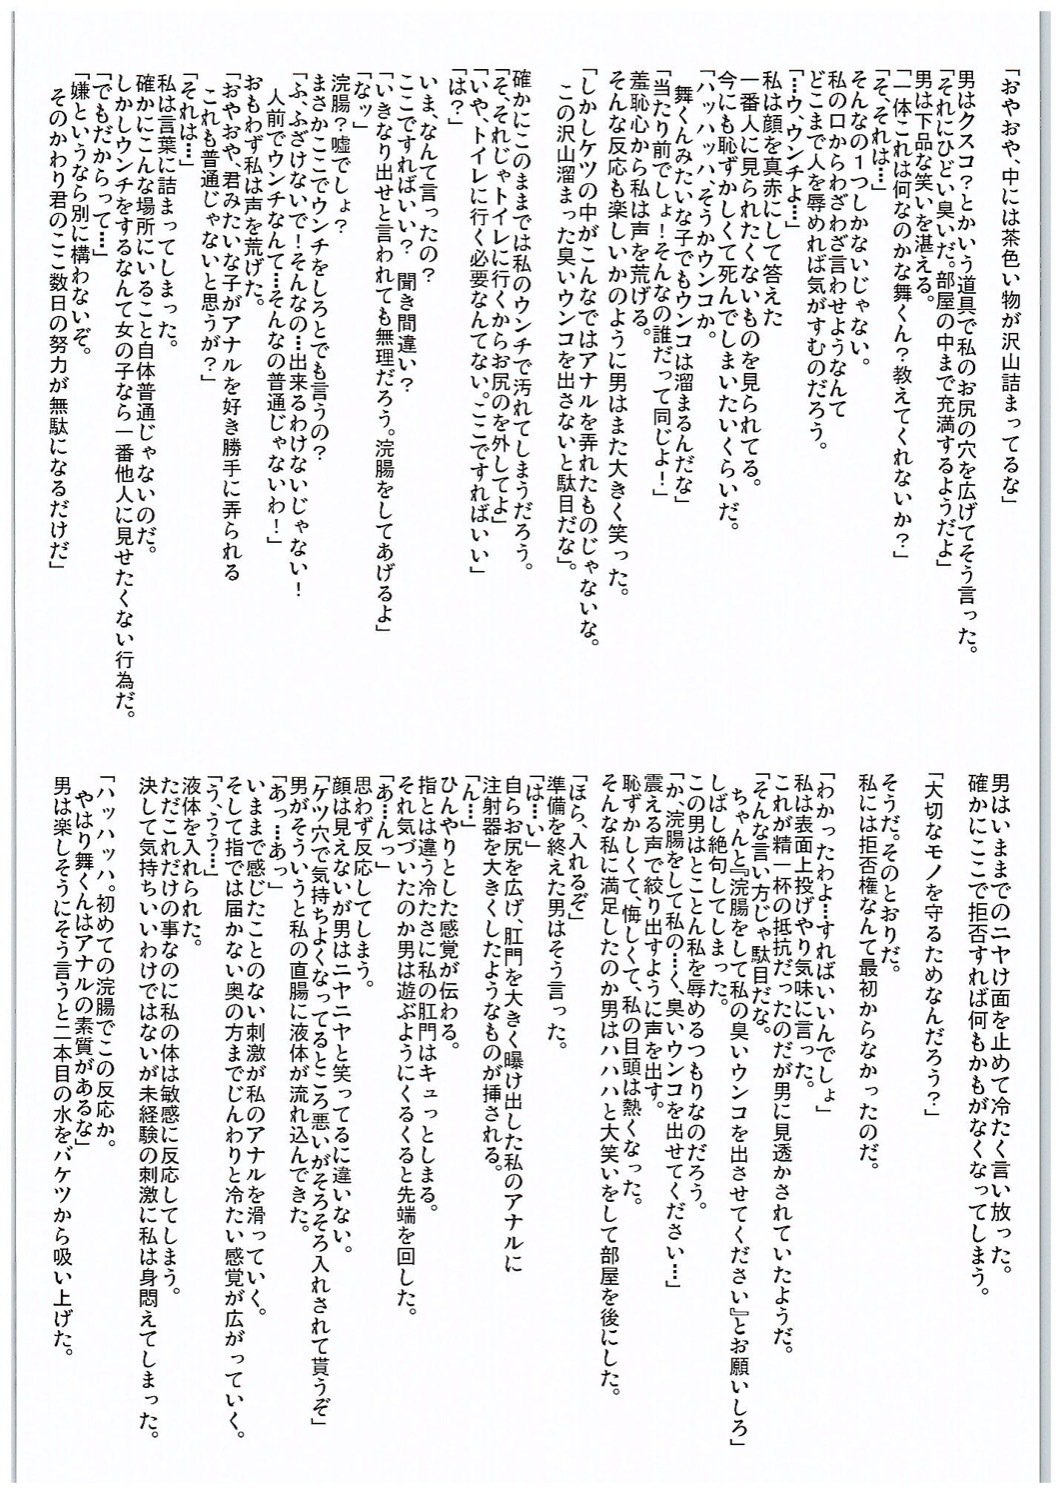 「おやおや、中には茶色い物が沢山詰まってるな」
男はクスコ？とかいう道具で私のお尻の穴を広げてそう言った。
「それにひどい臭いだ。部屋の中まで充満するようだよ」
男は下品な笑いを湛える。
「一体これは何なのかな舞くん？教えてくれないか？」
「そ、それは…」
そんなの１つしかないじゃない。
私の口からわざわざ言わせようなんて
どこまで人を辱めれば気がすむのだろう。
「…ウ、ウンチよ…」
私は顔を真赤にして答えた
一番人に見られたくないものを見られてる。
今にも恥ずかしくて死んでしまいたいくらいだ。
「ハッハッハ、そうかウンコか。
舞くんみたいな子でもウンコは溜まるんだな」
「当たり前でしょ！そんなの誰だって同じよ！」
羞恥心から私は声を荒げる。
そんな反応も楽しいかのように男はまた大きく笑った。
「しかしケツの中がこんなではアナルを弄れたものじゃないな。
この沢山溜まった臭いウンコを出さないと駄目だな」。
確かにこのままでは私のウンチで汚れてしまうだろう。
「そ、それじゃトイレに行くからお尻のを外してよ」
「いや、トイレに行く必要なんてない。ここですればいい」
「は？」
いま、なんて言ったの？
ここですればいい？　聞き間違い？
「いきなり出せと言われても無理だろう。浣腸をしてあげるよ」
「なッ」
浣腸？嘘でしょ？
まさかここでウンチをしろとでも言うの？
「ふ、ふざけないで！そんなの…出来るわけないじゃない！
人前でウンチなんて…そんなの普通じゃないわ！」
おもわず私は声を荒げた。
「おやおや、君みたいな子がアナルを好き勝手に弄られる
これも普通じゃないと思うが？」
「それは…」
私は言葉に詰まってしまった。
確かにこんな場所にいること自体普通じゃないのだ。
しかしウンチをするなんて女の子なら一番他人に見せたくない行為だ。
「でもだからって…」
「嫌というなら別に構わないぞ。
そのかわり君のここ数日の努力が無駄になるだけだ」
男はいままでのニヤけ面を止めて冷たく言い放った。
確かにここで拒否すれば何もかもがなくなってしまう。
「大切なモノを守るためなんだろう？」
そうだ。そのとおりだ。
私には拒否権なんて最初からなかったのだ。
「わかったわよ…すればいいんでしょ」
私は表面上投げやり気味に言った。
これが精一杯の抵抗だったのだが男に見透かされていたようだ。
「そんな言い方じゃ駄目だな。
ちゃんと『浣腸をして私の臭いウンコを出させてください』とお願いしろ」
しばし絶句してしまった。
この男はとことん私を辱めるつもりなのだろう。
「か、浣腸をして私の…く、臭いウンコを出せてください…」
震える声で絞り出すように声を出す。
恥ずかしくて、悔しくて、私の目頭は熱くなった。
そんな私に満足したのか男はハハハと大笑いをして部屋を後にした。
「ほら、入れるぞ」
準備を終えた男はそう言った。
「は…い」
自らお尻を広げ、肛門を大きく曝け出した私のアナルに
注射器を大きくしたようなものが挿される。
「ん…」
ひんやりとした感覚が伝わる。
指とは違う冷たさに私の肛門はキュっとしまる。
それ気づいたのか男は遊ぶようにくるくると先端を回した。
「あ…んっ」
思わず反応してしまう。
顔は見えないが男はニヤニヤと笑ってるに違いない。
「ケツ穴で気持ちよくなってるところ悪いがそろそろ入れされて貰うぞ」
男がそういうと私の直腸に液体が流れ込んできた。
「あっ…あっ」
いままで感じたことのない刺激が私のアナルを滑っていく。
そして指では届かない奥の方までじんわりと冷たい感覚が広がっていく。
「う、うう…」
液体を入れられた。
ただこれだけの事なのに私の体は敏感に反応してしまう。
決して気持ちいいわけではないが未経験の刺激に私は身悶えてしまった。
「ハッハッハ。初めての浣腸でこの反応か。
やはり舞くんはアナルの素質があるな」
男は楽しそうにそう言うと二本目の水をバケツから吸い上げた。